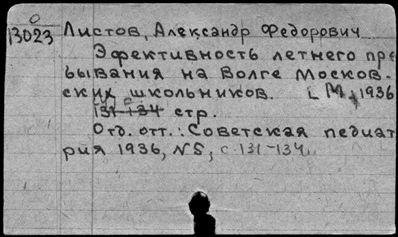 0
13023 Листов, Александр Федорович
Эфективность летнего пре
бывания на Волге москов-
ских школьников. [М, 1936
131-134 стр.
Отд. отт.: Советская педиат
рия 1936, N5, с.131-134